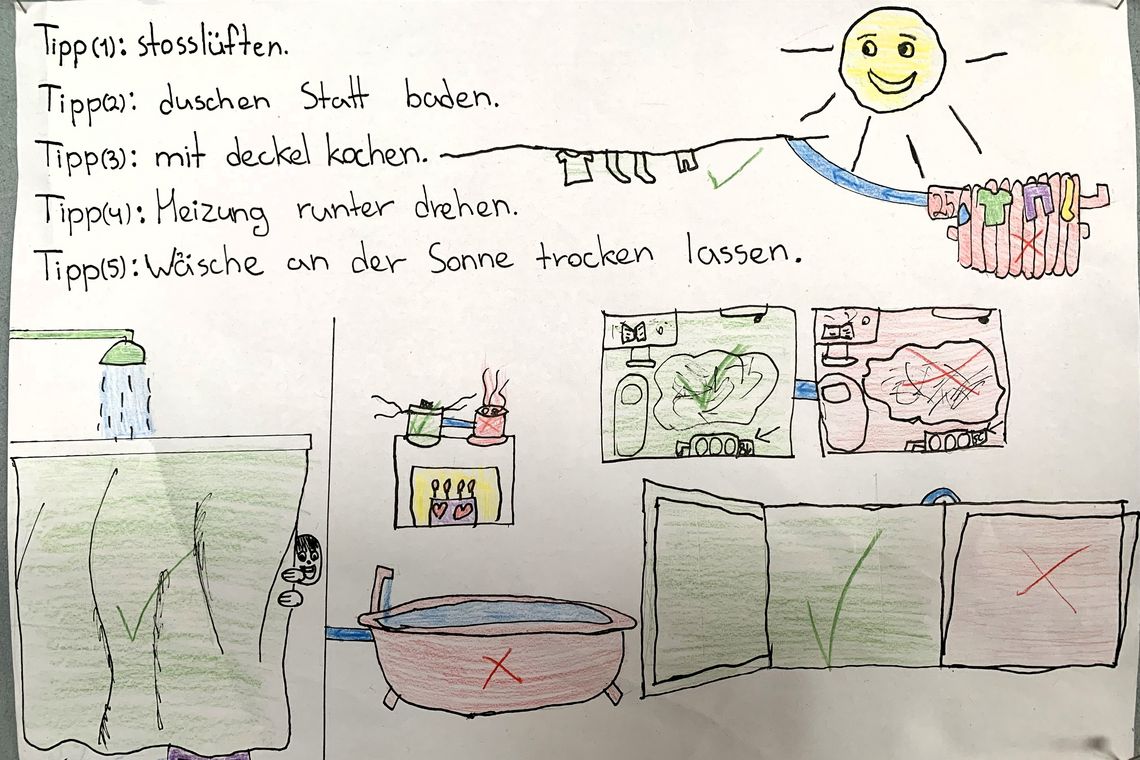 Tipp(1): stosslüften.
Tipp(2): duschen Statt baden.
Tipp(3): mit deckel kochen.
Tipp(4): Heizung runter drehen.
Tipp(5): Wäsche an der Sonne trocken lassen.
25